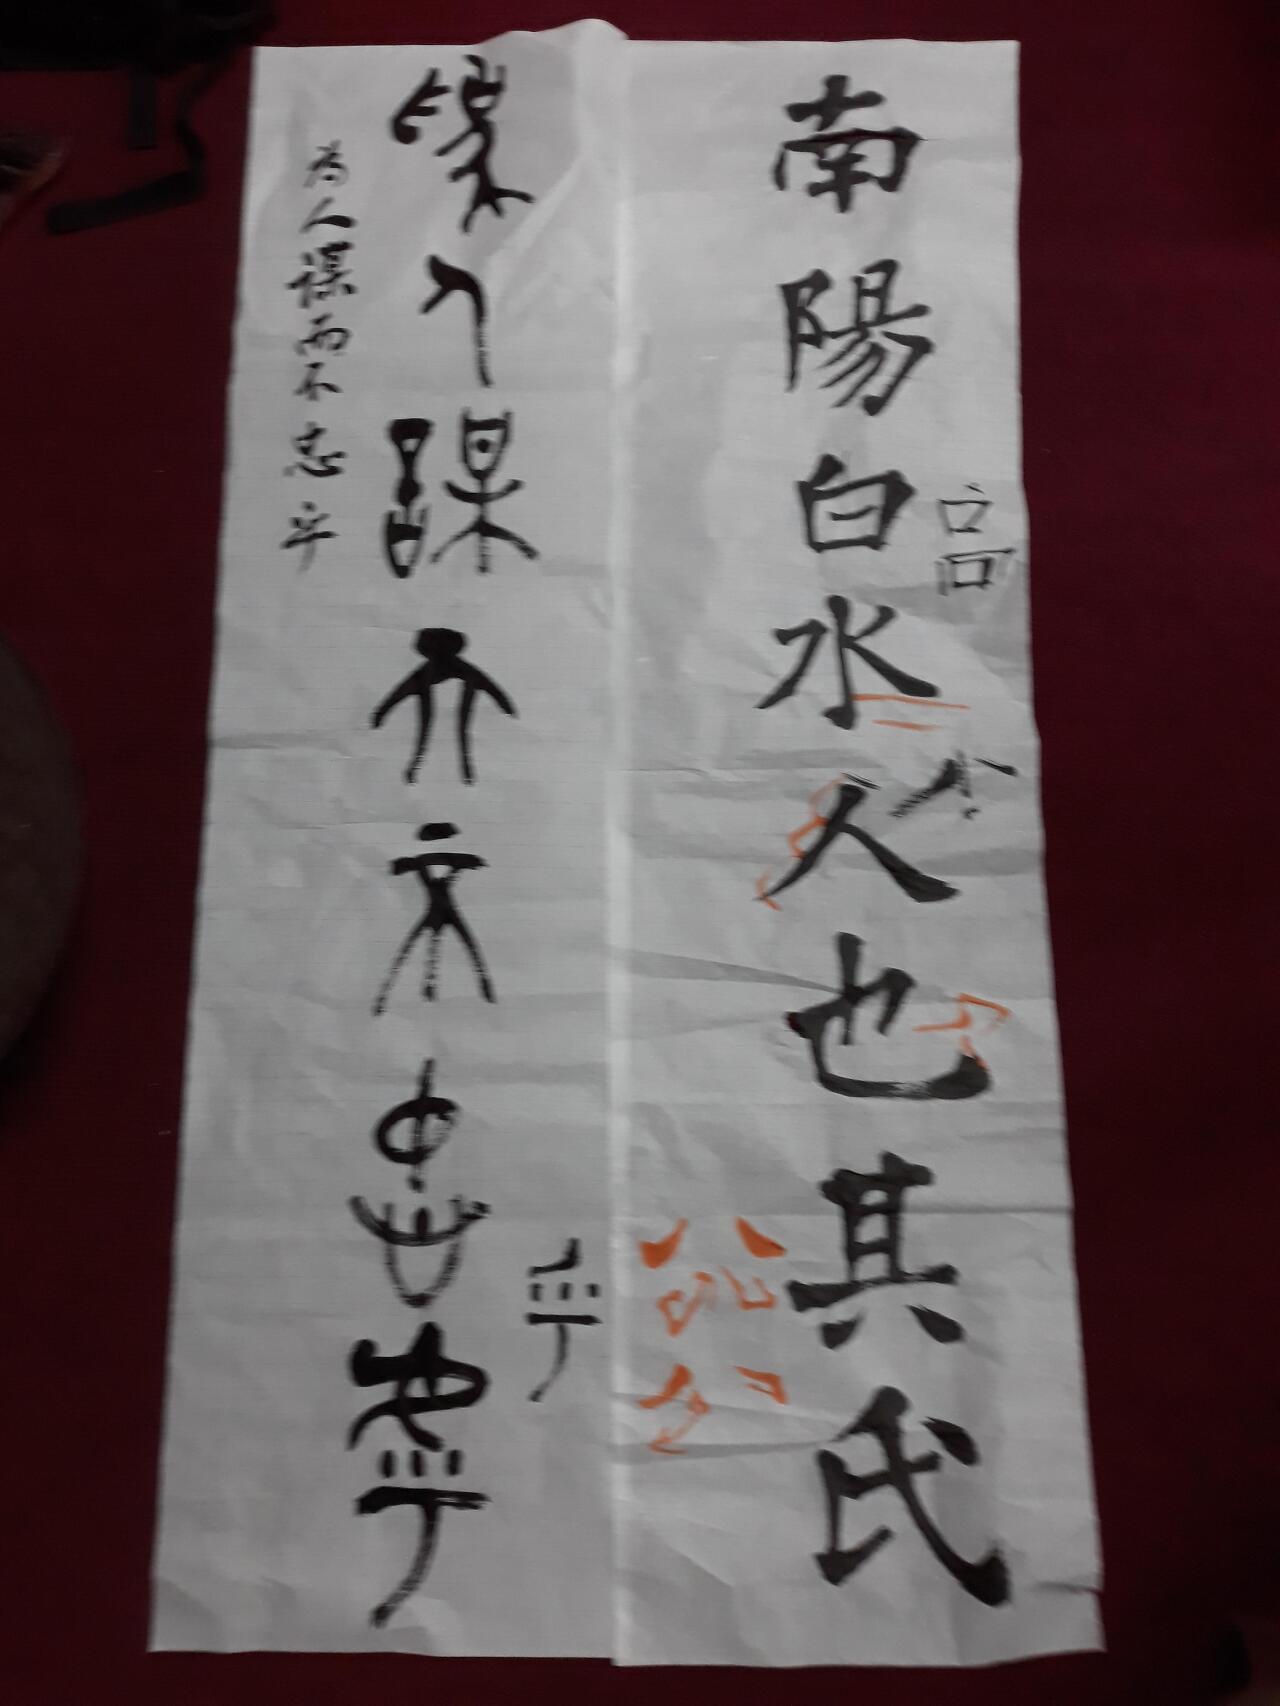 南陽白水人也其氏
高
小
為人謀而不忠虖
乎
為人謀而不忠乎